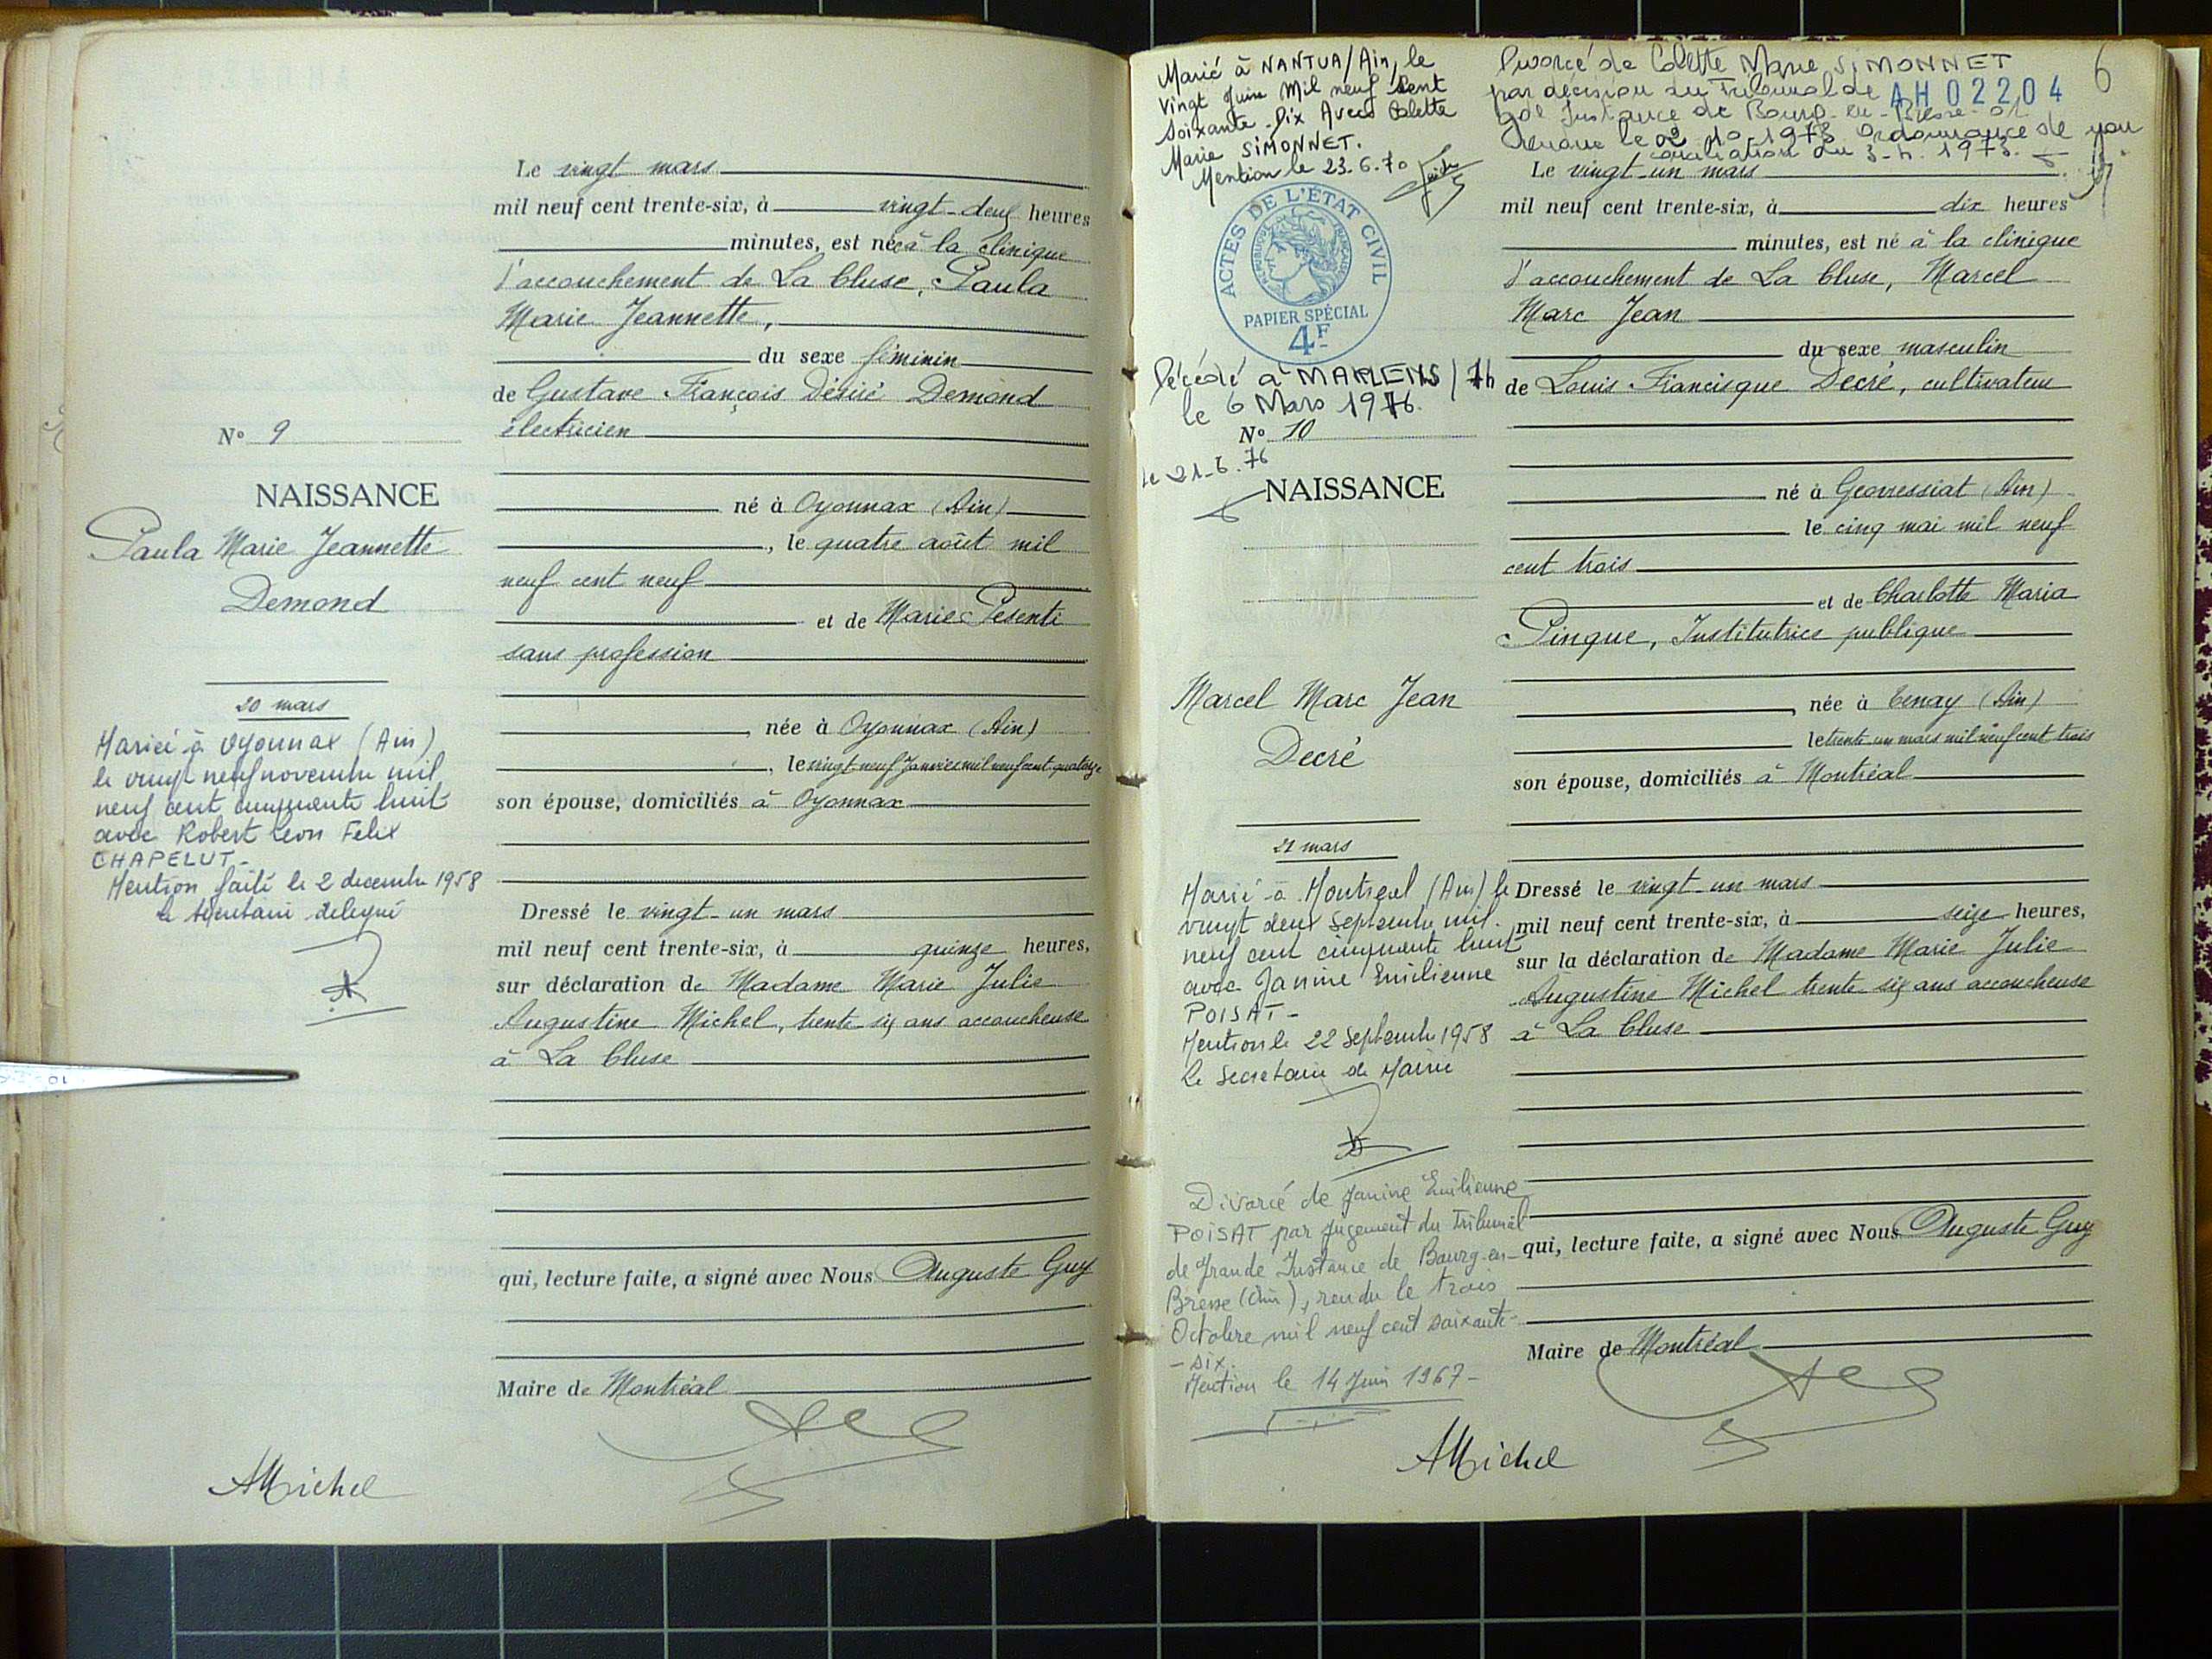 Le vingt mars
mil neuf cent trente-six, à vingt-deux heures
minutes, est née à la clinique
d'accouchement de La Cluse, Paula
Marie Jeannette,
du sexe féminin
de Gustave François Désiré Demond
électricien
né à Oyonnax (Ain)
, le quatre août mil
neuf cent neuf
et de Marie Pesenti
sans profession
, née à Oyonnax (Ain)
, le vingt-neuf Janvier mil neuf cent quatorze
son épouse, domiciliés à Oyonnax
Dressé le vingt-un mars
mil neuf cent trente-six, à quinze heures,
sur déclaration de Madame Marie Julie
Augustine Michel, trente-six ans accoucheuse
à La Cluse
qui, lecture faite, a signé avec Nous Auguste Guy
Maire de Montréal
N° 9
NAISSANCE
Paula Marie Jeannette
Demond
20 mars
Mariée à Oyonnax (Ain)
le vingt neuf novembre mil
neuf cent cinquante huit
avec Robert Leon Felix
CHAPELUT-
Mention faite le 2 decembre 1958
le secretaire delegué
AMichel
Marié à NANTUA/Ain, le
vingt Juin Mil neuf Cent
Soixante-Dix Avec Colette
Marie SIMONNET.
Mention le 23.6.70
ACTES DE L'ÉTAT CIVIL
RÉPUBLIQUE FRANÇAISE
PAPIER SPÉCIAL
4F
Décédé à MARLENS/74
le 6 Mars 1976.
N° 10
le 21-6.76
NAISSANCE
Marcel Marc Jean
Decré
21 mars
Marié à Montreal (Ain) le
vingt deux Septembre mil
neuf cent cinquante huit
avec Janine Emilienne
POISAT-
Mention le 22 Septembre 1958
le Secretaire de Mairie
Divorcé de Janine Emilienne
POISAT par jugement du Tribunal
de Grande Instance de Bourg-en-
Bresse (Ain), rendu le trois
Octobre mil neuf cent soixante-
-six.
Mention le 14 Juin 1967-
AMichel
Divorcé de Colette Marie SIMONNET
par décision du Tribunal de
gde Instance de Bourg-en-Bresse-01
rendue le 02.10.1973 Ordonnance de non
conciliation du 3-4.1973.
AH02204
6
Le vingt-un mars
mil neuf cent trente-six, à dix heures
minutes, est né à la clinique
d'accouchement de La Cluse, Marcel
Marc Jean
du sexe masculin
de Louis Francisque Decré, cultivateur
né à Geovressiat (Ain)
le cinq mai mil neuf
cent trois
et de Charlotte Maria
Pinque, Institutrice publique
, née à Tenay (Ain)
le trente-un mars mil neuf cent trois
son épouse, domiciliés à Montréal
Dressé le vingt-un mars
mil neuf cent trente-six, à seize heures,
sur la déclaration de Madame Marie Julie
Augustine Michel trente-six ans accoucheuse
à La Cluse
qui, lecture faite, a signé avec Nous Auguste Guy
Maire de Montréal